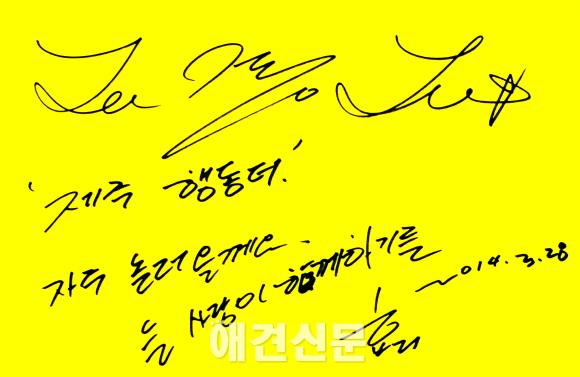 '제주 행동터.'
자주 놀러올께요.
늘 사랑이 함께하기를
2014.3.28
효리
애견신문